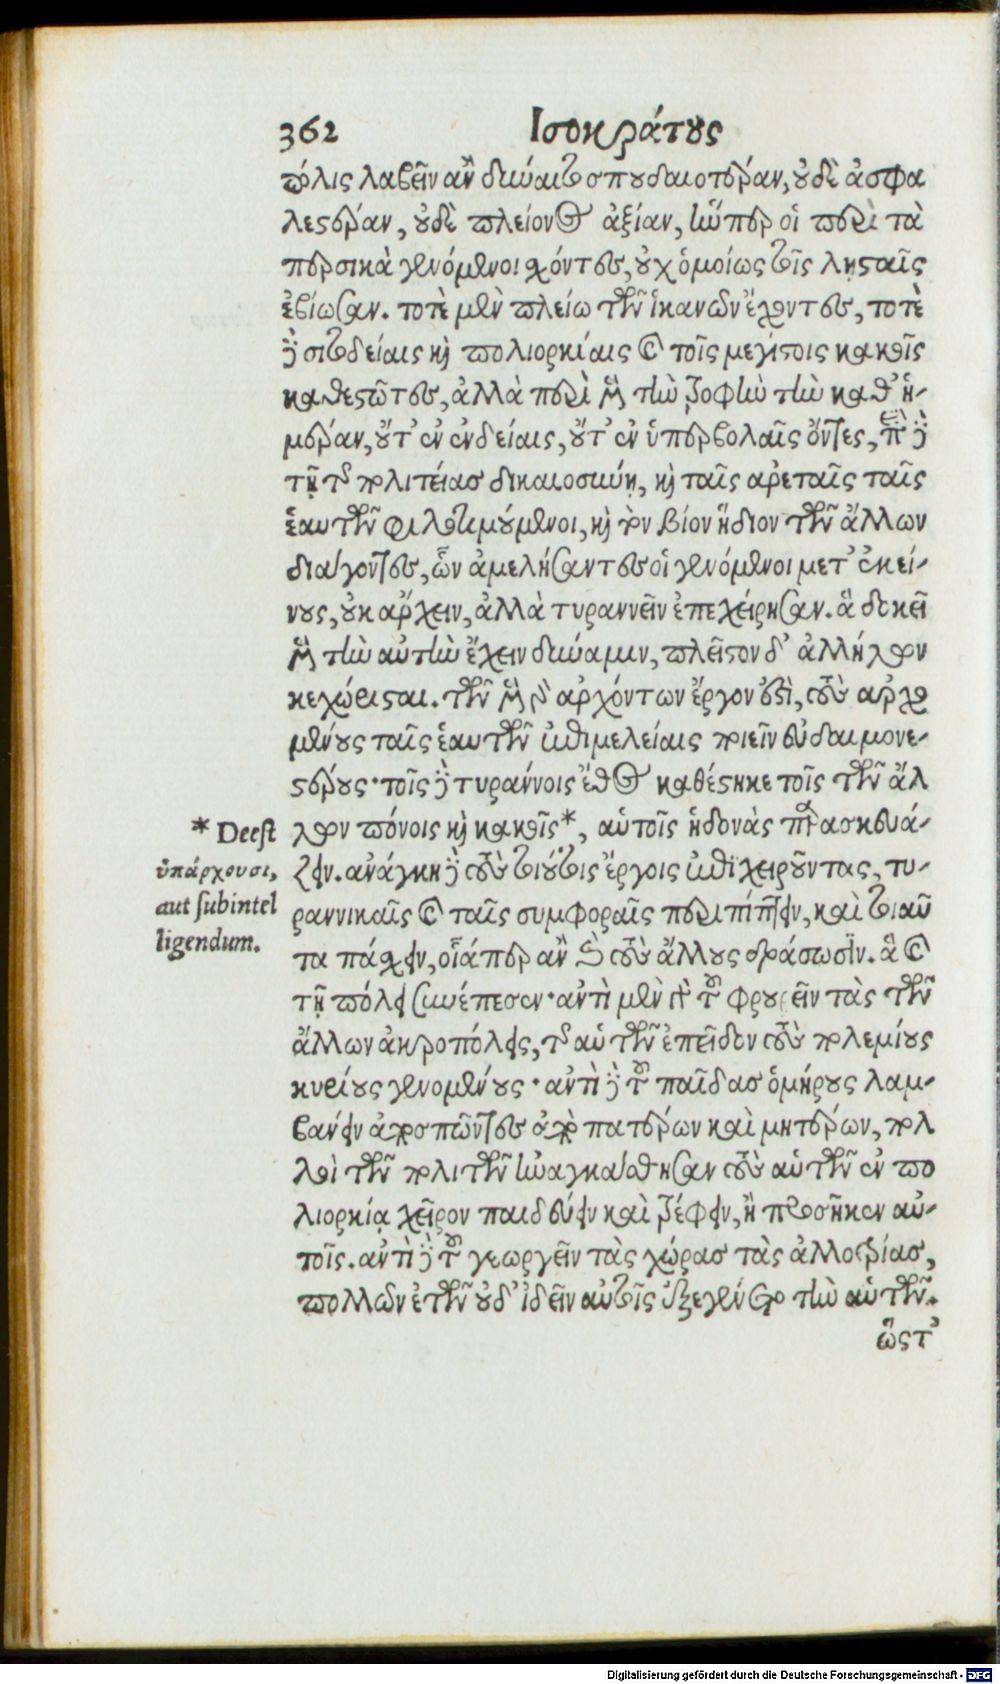 362 Ισοκράτους
πόλις λαβεῖν ἂν δύναιτο σπουδαιοτέραν, οὐδὲ ἀσφα
λεστέραν, οὐδὲ πλείονος ἀξίαν, ἥνπερ οἱ περὶ τὰ
περσικὰ γενόμενοι σχόντες, οὐχ ὁμοίως τοῖς λῃσταῖς
ἐβίωσαν. τοτὲ μὲν πλείω τῶν ἱκανῶν ἔχοντες, τοτὲ
δὲ σιτοδείαις καὶ πολιορκίαις καὶ τοῖς μεγίστοις κακοῖς
καθεστῶτες, ἀλλὰ περὶ μὲν τὴν τροφὴν τὴν καθ' ἡ-
μέραν, οὔτ' ἐν ἐνδείαις, οὔτ' ἐν ὑπερβολαῖς ὄντες, ἐπὶ δὲ
τῇ τῆς πολιτείας δικαιοσύνῃ, καὶ ταῖς ἀρεταῖς ταῖς
ἑαυτῶν φιλοτιμούμενοι, καὶ τὸν βίον ἥδιον τῶν ἄλλων
διαγοντες, ὧν ἀμελήσαντες οἱ γενόμενοι μετ' ἐκεί-
νους, οὐκ ἄρχειν, ἀλλὰ τυραννεῖν ἐπεχείρησαν. ἃ δοκεῖ
μὲν τὴν αὐτὴν ἔχειν δύναμιν, πλεῖστον δ' ἀλλήλων
κεχώρισται. τῶν μὲν γὰρ ἀρχόντων ἔργον ἐστὶ, τοὺς ἀρχο
μένους ταῖς ἑαυτῶν ἐπιμελείαις ποιεῖν εὐδαιμονε-
στέρους· τοῖς δὲ τυράννοις ἔθος καθέστηκε τοῖς τῶν ἄλ
λων πόνοις καὶ κακοῖς*, αὑτοῖς ἡδονὰς παρασκευά-
ζειν. ἀνάγκη δὲ τοὺς τοιούτοις ἔργοις ἐπιχειροῦντας, τυ-
ραννικαῖς καὶ ταῖς συμφοραῖς περιπίπτειν, καὶ τοιαῦ
τα πάσχειν, οἷάπερ ἂν καὶ τοὺς ἄλλους δράσωσιν. ἃ καὶ
τῇ πόλει συνέπεσεν· ἀντὶ μὲν γὰρ τοῦ φρουρεῖν τὰς τῶν
ἄλλων ἀκροπόλεις, τῆς αὑτῶν ἐπεῖδον τοὺς πολεμίους
κυρίους γενομένους· ἀντὶ δὲ τοῦ παῖδας ὁμήρους λαμ-
βάνειν ἀποσπῶντες ἀπὸ πατέρων καὶ μητέρων, πολ
λοὶ τῶν πολιτῶν ἠναγκάσθησαν τοὺς αὑτῶν ἐν πο
λιορκίᾳ χεῖρον παιδεύειν καὶ τρέφειν, ἢ προσῆκεν αὐ-
τοῖς. ἀντὶ δὲ τοῦ γεωργεῖν τὰς χώρας τὰς ἀλλοτρίας,
πολλῶν ἐτῶν οὐδ' ἰδεῖν αὐτοῖς ἐξεγένετο τὴν αὑτῶν.
ὥστ'
* Deest
ὑπάρχουσι,
aut subintel
ligendum.
Digitalisierung gefördert durch die Deutsche Forschungsgemeinschaft - DFG